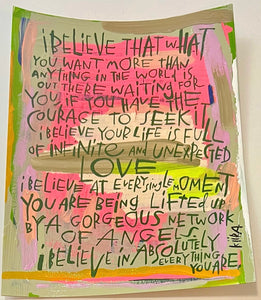 i BELIEVE THAT WHAT
YOU WANT MORE THAN
ANYTHING IN THE WORLD IS
OUT THERE WAITING FOR
YOU, IF YOU HAVE THE
COURAGE TO SEEK IT
i BELIEVE YOUR LIFE IS FULL
OF INFINITE AND UNEXPECTED
LOVE
i BELIEVE AT EVERY SINGLE MOMENT
YOU ARE BEING LIFTED UP
BY A GORGEOUS NETWORK
OF ANGELS
i BELIEVE IN ABSOLUTELY
EVERYTHING YOU ARE.